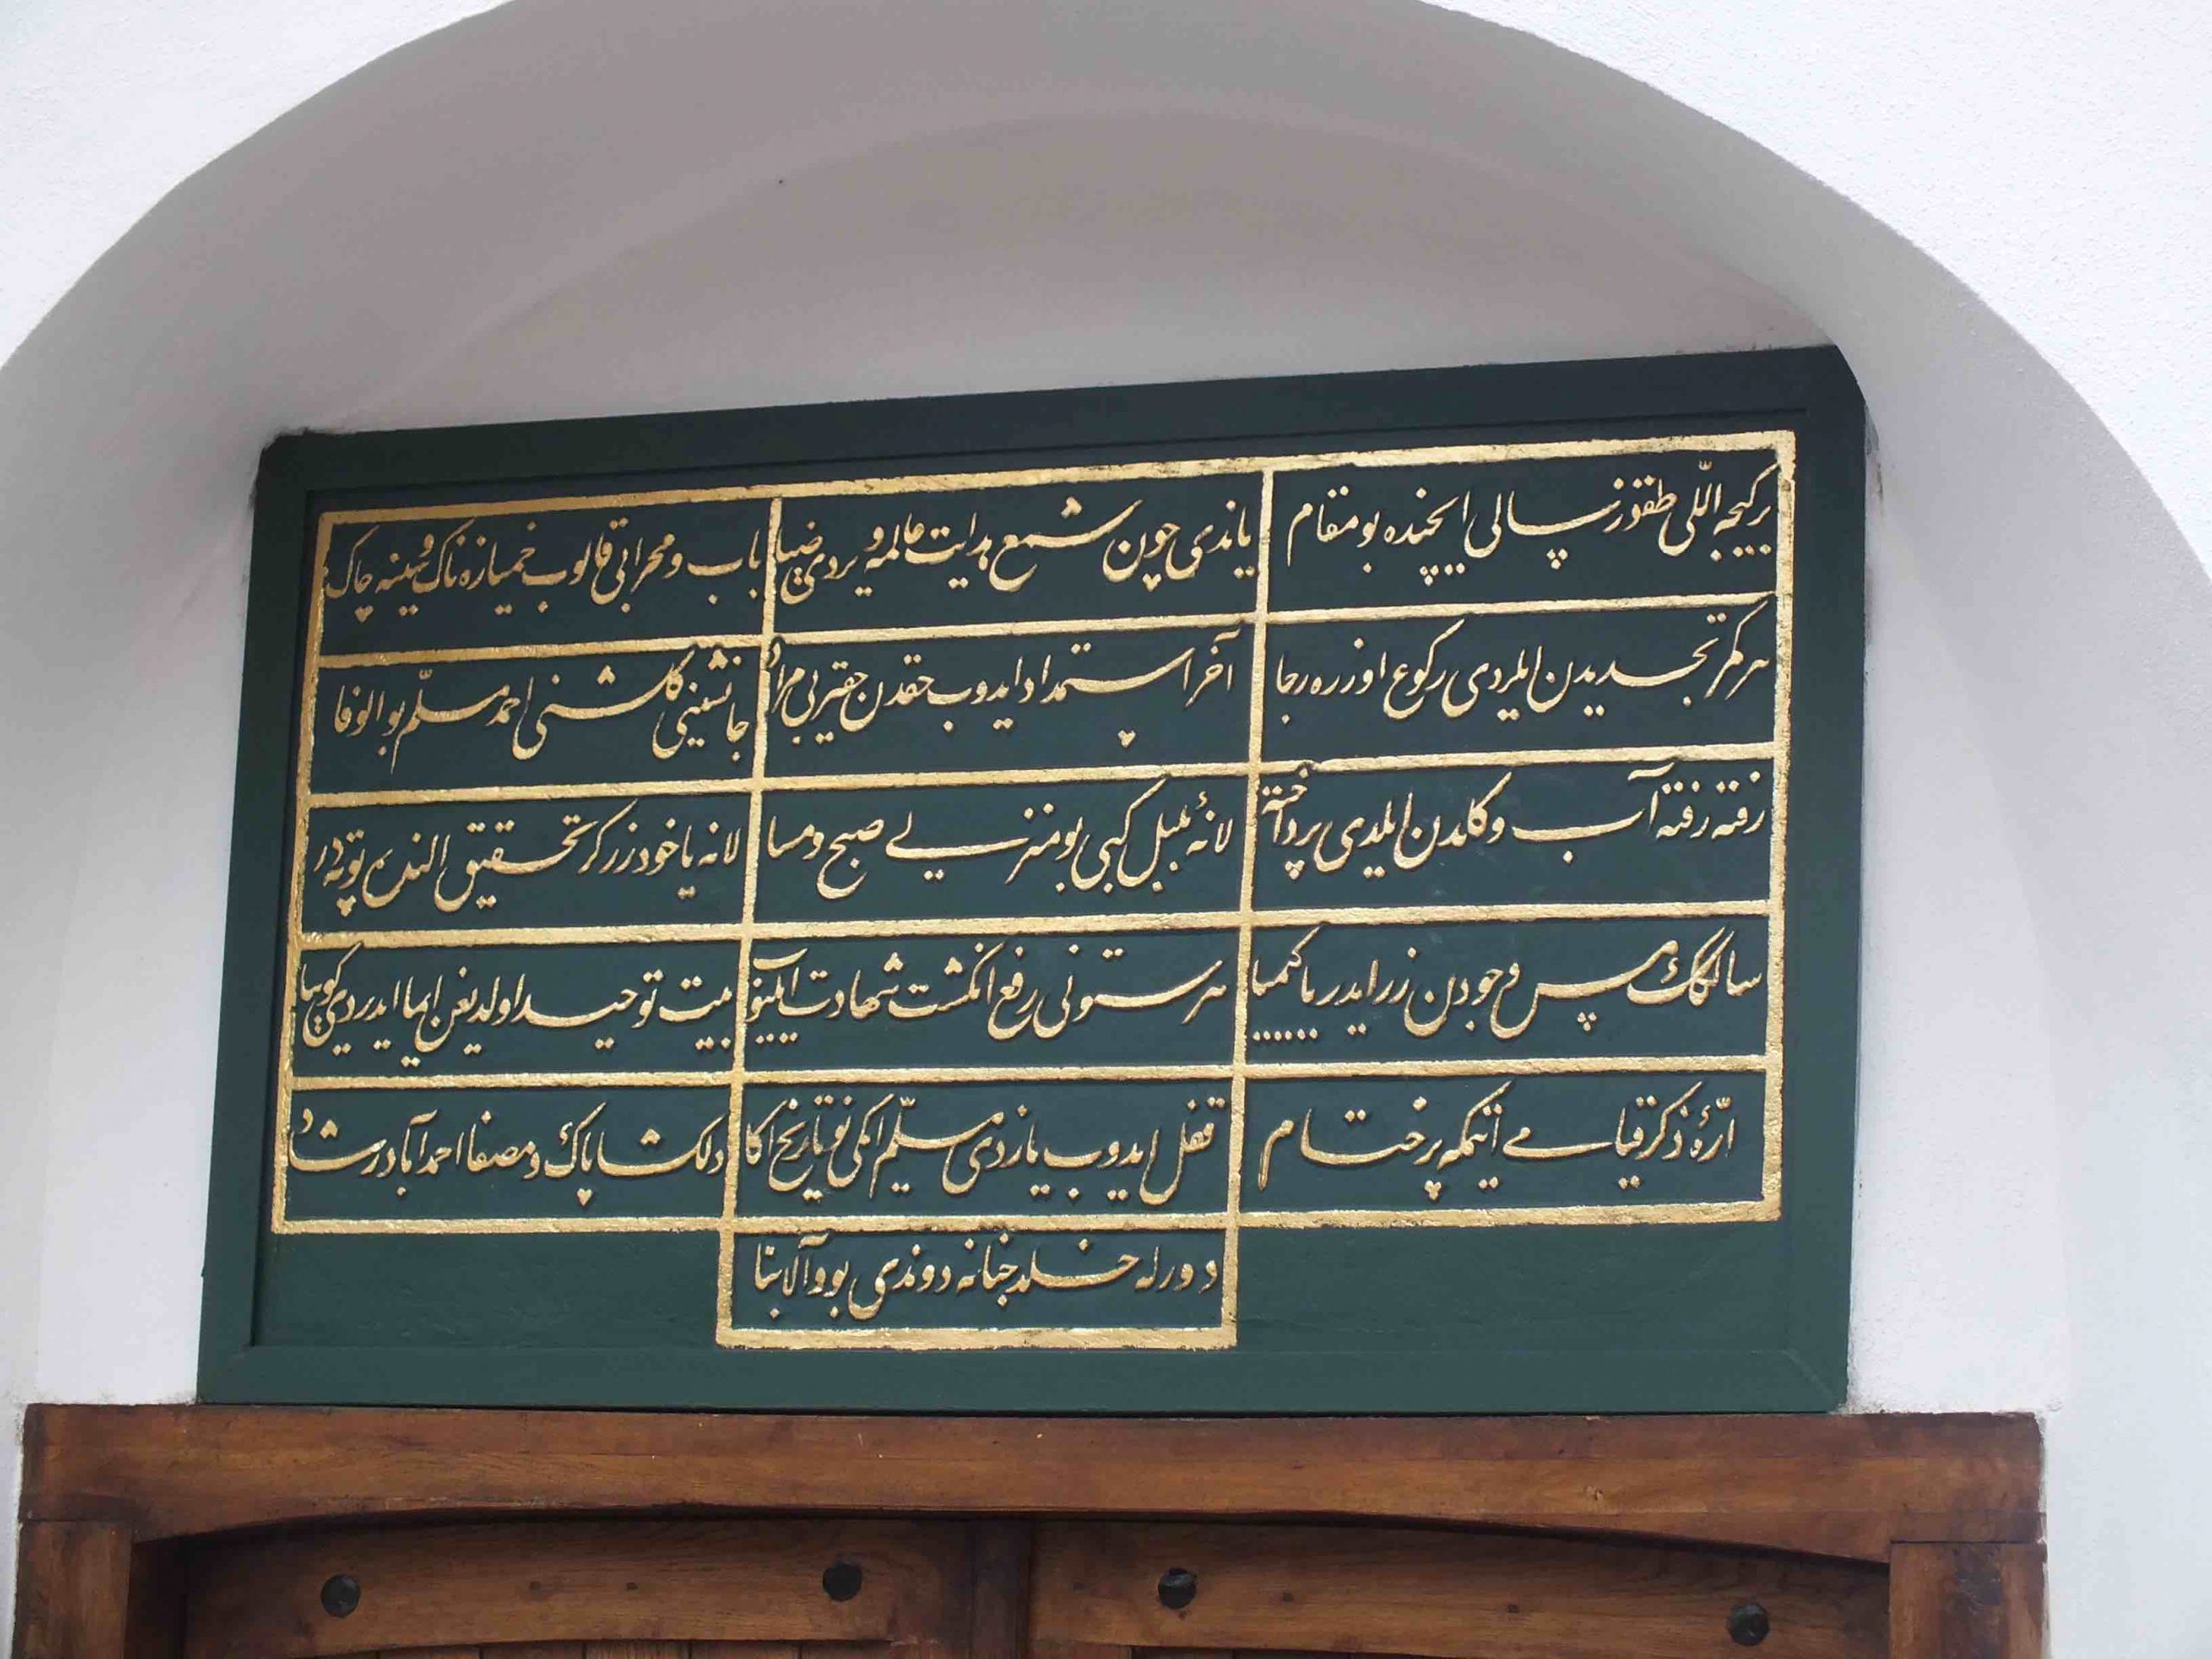 بر كیجه اللی طقوز سالی ایچنده بو مقام
یاندی چون شمع هدایت عالمه ویردی ضیا
باب و محرابی قالوب خمیازه ناك و سینه چاك
هر كمر تجدیدن ایلردی ركوع اوزره رجا
آخر استمداد ایدوب حقدن حقیر بی مراد
جانشینی كلشنی احمد مسلّم بو الوفا
رفته رفته آب و كلدن ایلدی پرداخته
لانهٔ بلبل كبی بو منزلی صبح و مسا
لانه یاخود زركر تحقیق النده پوته در
سالكك مس وجودن زر ایدر با كیمیا
هر ستونی رفع انكشت شهادت ایلیوب
بیت توحید اولدیغن ایما ایدردی كوییا
ارّهٔ ذكر قیامی ایتمكه پر ختام
قفل ایدوب یازدی مسلّم ایكی نو تاریخ اكا
دلكشا پاك و مصفا احمد آباد رشاد
دورله خلد جنانه دوندی بو والا بنا